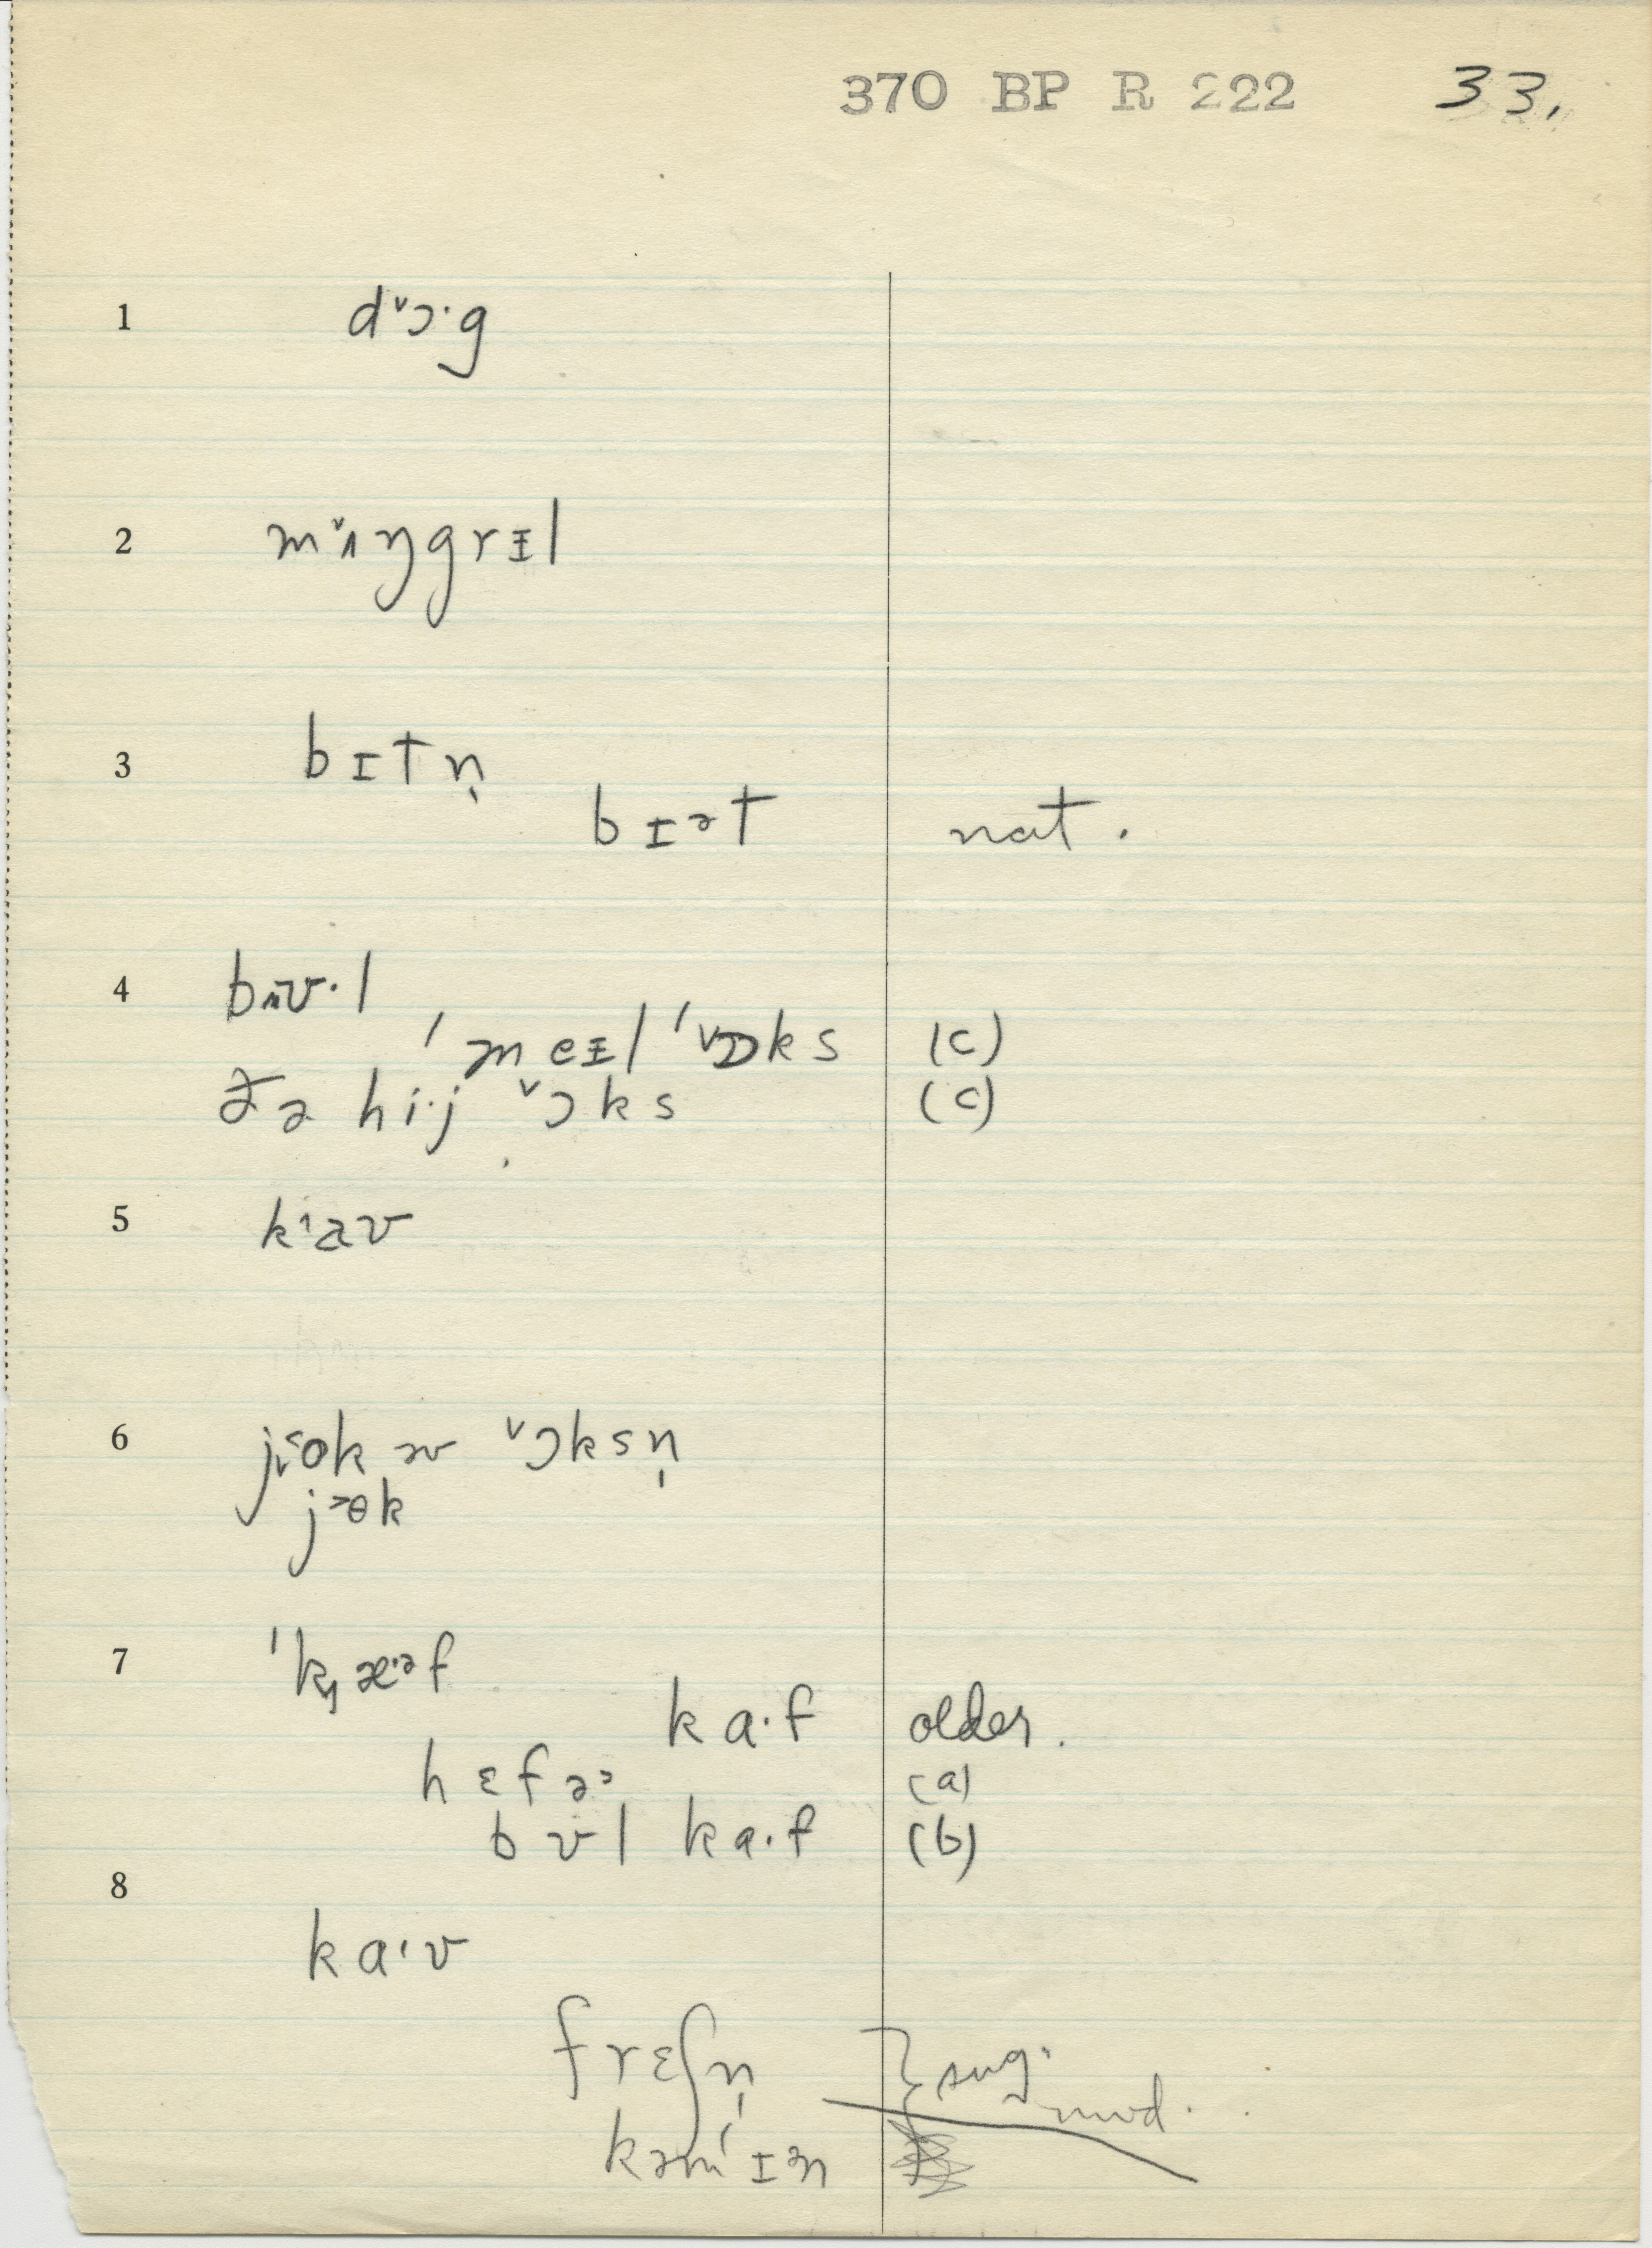 370 BP R 222 33.
1 d˅ɔ·g
2 m˅ʌŋgrɪl
3 bɪtn̩
bɪət nat.
4 bʌʊ·l
ˈmeɪl ˈ˅ɒks (c)
ðə hi·j ˅ɔks (c)
5 k˄aʊ
6 əv ˅ɔksn̩
7
ka·f older.
hɛfə˒ (a)
bʊl ka·f (b)
8
ka·v
frɛʃn̩ } sug. mod.
kəmˈɪn